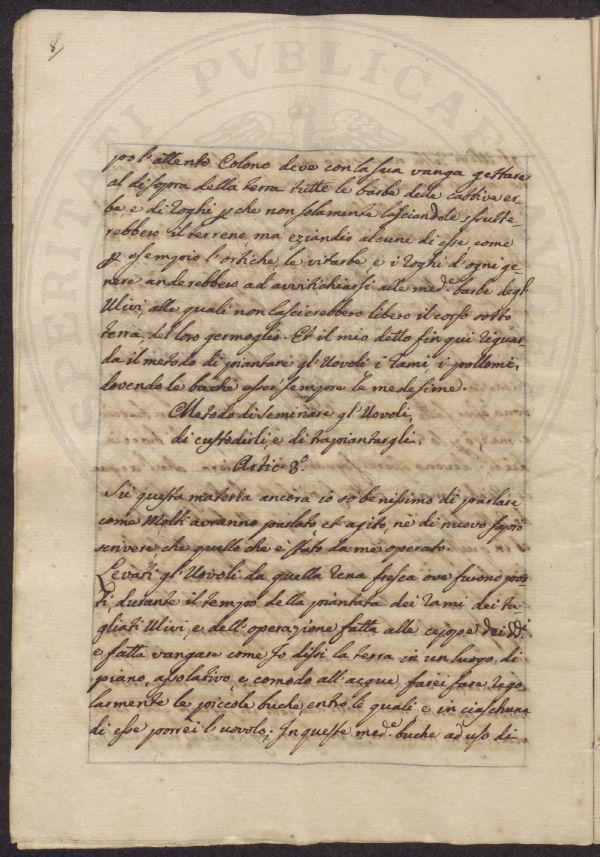 8/
po l'attento Colono deve con la sua vanga gettare
al di sopra della terra tutte le barbe delle cattive er-
be, e di Roghi p che non solamente lasciandole sfrutte-
rebbero il terreno, ma eziandio alcune di esse, come
p esempio l'ortiche, le vitarbe e i Roghi d'ogni ge-
nere anderebbero ad avvitichiarsi alle med.e barbe degl'
Ulivi alle quali non lascierebbero libero il corso sotto
terra del loro germoglio. Et il mio detto fin qui riguar-
da il metodo di piantare gl'Uovoli i Rami, i polloni,
dovendo le buche esser sempre le medesime.
Metodo di seminare gl'Uovoli,
di custodirli, e di trapiantargli.
Artic. 8.o
Sù questa materia ancora io so benissimo di parlare
come Molti avranno parlato et agito, nè di nuovo saprò
scrivere, che quello che è stato da me operato.
Levati gl'Uovoli da quella rena fresca ove furono pos-
ti, durante il tempo della piantata dei Rami dei ta-
gliati Ulivi, e dell'operazione fatta alle ceppe dei
e fatta vangare come Io dissi la terra in un luogo di
piano, assolativo, e comodo all'acque, farei fare rego-
larmente le piccole buche, entro le quali, e in ciaschuna
di esse porrei l'uovolo; In queste med.e buche ad uso di